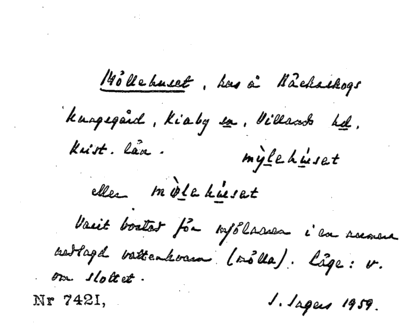 Möllehuset, hus å Bäckaskogs
kungsgård, Kiaby sn, Villands hd,
Krist. län. mỳlehúset
eller mö̀lehúset
Varit bostad för mjölnaren i en numera
nedlagd vattenkvarn (mölla). Läge: v.
om slottet.
Nr 7421, I. Ingers 1959.